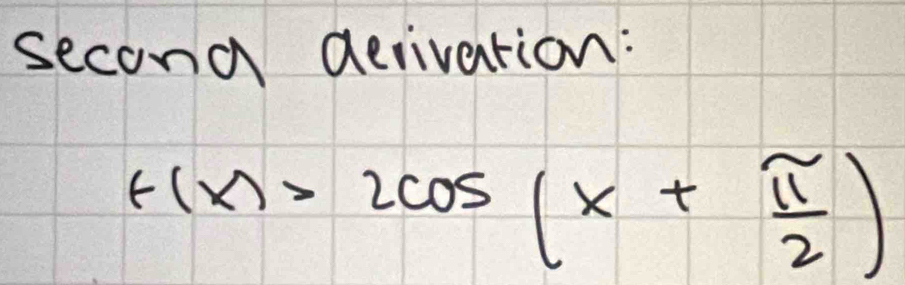 second derivation:
f(x) = 2cos (x + π/2)